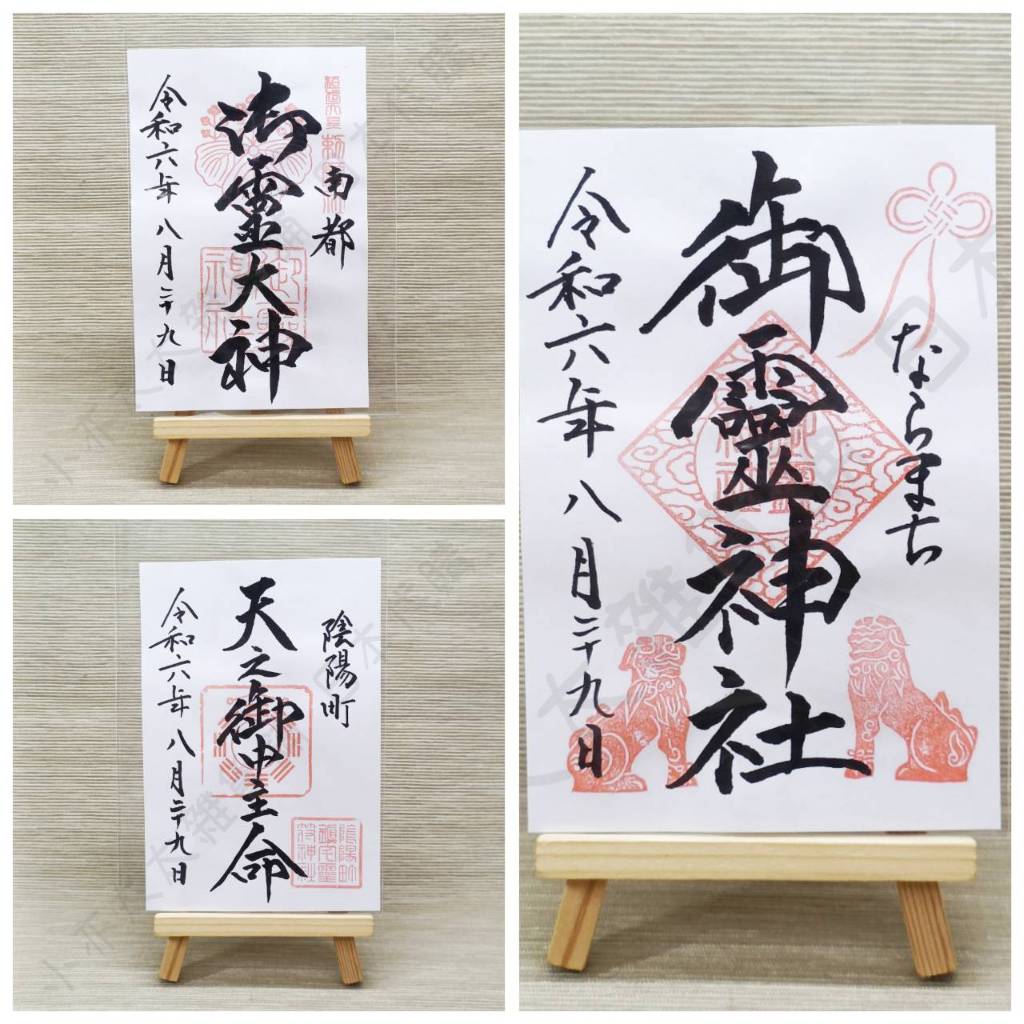 南都
御霊大神
令和六年八月二十九日
陰陽町
天之御中主命
令和六年八月二十九日
ならまち
御靈神社
令和六年八月二十九日